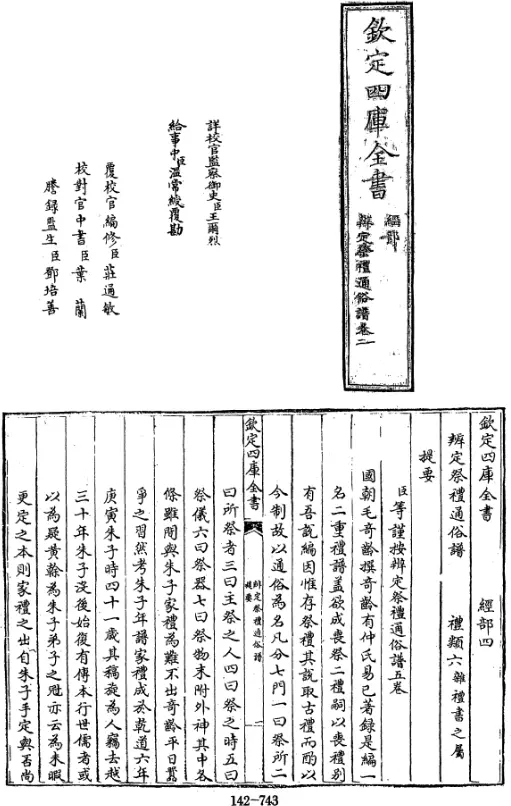 欽定四庫全書
經部
辨定祭禮通俗譜卷二
詳校官監察御史臣王爾烈
給事中臣溫常綬覆勘
覆校官編修臣莊通敏
校對官中書臣葉蘭
謄錄監生臣鄧培善
欽定四庫全書 經部四
辨定祭禮通俗譜 禮類六雜禮書之屬
提要
臣等謹按辨定祭禮通俗譜五卷
國朝毛奇齡撰奇齡有仲氏易已著錄是編一
名二重禮譜盖欲成喪祭二禮嗣以喪禮別
有吾說編因惟存祭禮其說取古禮而酌以
今制故以通俗為名凡分七門一曰祭所二
欽定四庫全書 辨定祭禮通俗譜 提要 一
曰所祭者三曰主祭之人四曰祭之時五曰
祭儀六曰祭器七曰祭物末附外神其中各
條雖間與朱子家禮為難不出奇齡平日囂
爭之習然考朱子年譜家禮成於乾道六年
庚寅朱子時四十一歲其稿旋為人竊去越
三十年朱子沒後始復有傳本行世儒者或
以為疑黃榦為朱子弟子之冠亦云為未暇
更定之本則家禮之出自朱子手定與否尚
142-743